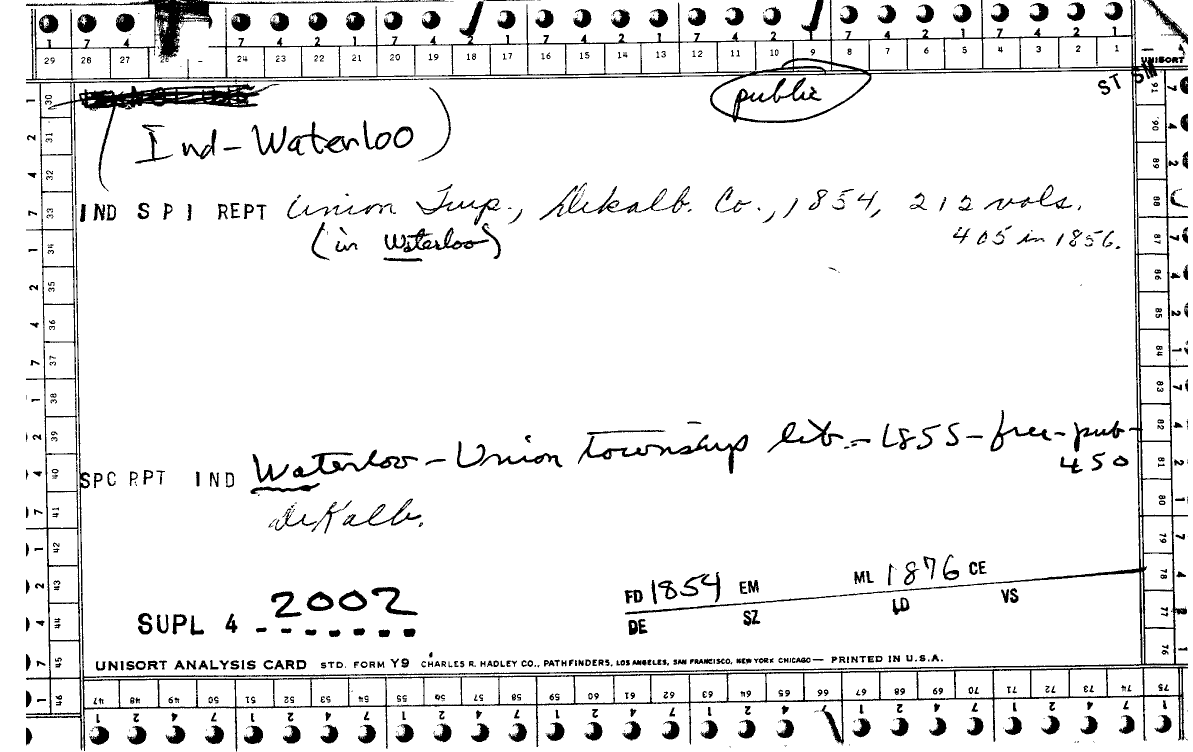 1 7 4 7 4 2 1 7 4 2 1 7 4 2 1 7 4 2 1 7 4 2 1 7 4 2 1
29 28 27 24 23 22 21 20 19 18 17 16 15 14 13 12 11 10 9 8 7 6 5 4 3 2 1 UNISORT
public
ST
(Ind-Waterloo)
IND S P I REPT Union Twp., DeKalb. Co., 1854, 212 vols.
(in Waterloo) 405 in 1856.
SPC RPT IND Waterloo - Union township lib. - 1855 - free - pub -
450
DeKalb.
FD 1854 EM ML 1876 CE
DE SZ LD VS
SUPL 4 2002
UNISORT ANALYSIS CARD STD. FORM Y9 CHARLES R. HADLEY CO., PATHFINDERS, LOS ANGELES, SAN FRANCISCO, NEW YORK CHICAGO — PRINTED IN U.S.A.
47 48 49 50 51 52 53 54 55 56 57 58 59 60 61 62 63 64 65 66 67 68 69 70 71 72 73 74 75